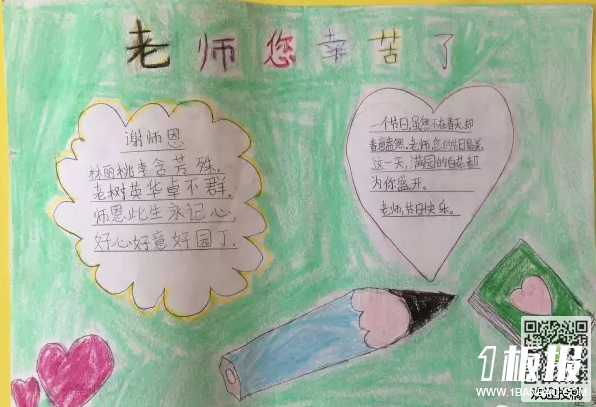 老师您幸苦了
谢师恩
林丽桃李含芳殊,
老树英华卓不群,
师恩此生永记心,
好心好意好园丁.
一个节日,虽然不在春天,却
春意盎然.老师,您的节日最美,
这一天,满园的百花都
为你盛开.
老师,节日快乐。
1板报
WWW.1BANBAO.COM
欢迎投稿